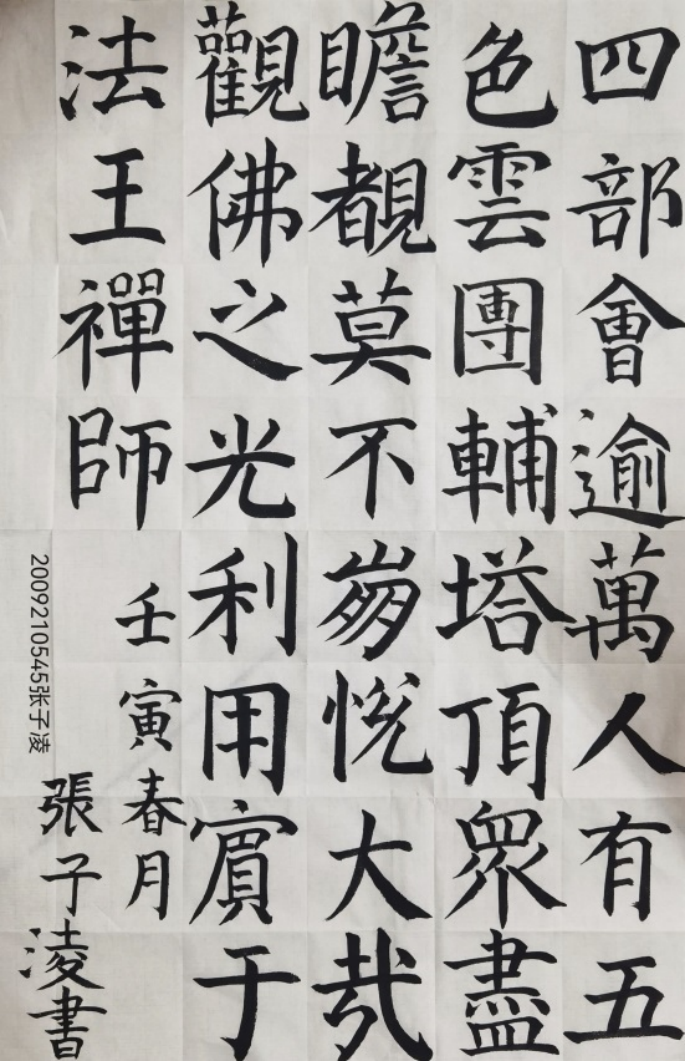 四部會逾萬人有五
色雲團輔塔頂眾盡
瞻覩莫不崩悅大哉
觀佛之光利用賓于
法王禪師
壬寅春月
張子淩書
2009210545张子凌